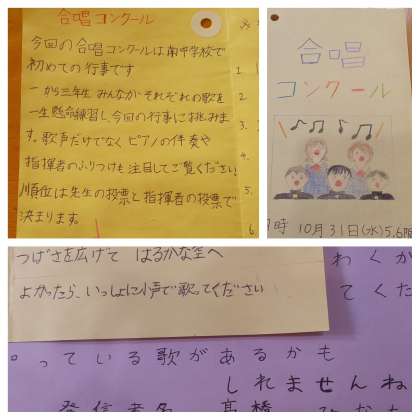 合唱コンクール
今回の合唱コンクールは南中学校で
初めての行事です
一から三年生 みんながそれぞれの歌を
一生懸命練習し、今回の行事にお挑みま
す。歌声だけでなくピアノの伴奏や
指揮者のふりつけも注目してご覧ください
順位は先生の投票と指揮者の投票で
決まります。
1
2.
3.
4.
5.
6
合唱
コンクール
時 10月31日(水)5,6限
つばさを広げて はるかな空へ
よかったら、いっしょに小声で歌ってください
わくか
てくだ
。っている歌があるかも
しれませんね
発信者名 高橋